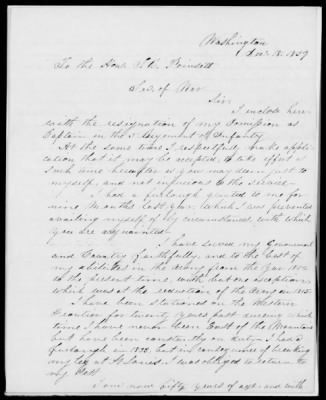 Washington
Dec. 18. 1839
To the Hon. J. R. Poinsett
Sec. of War
Sir
I inclose here-
with the resignation of my Commission as
Captain in the 5 Regiment of Infantry
At the same time I respectfully make appli-
cation that it may be accepted, to take effect at
such time hereafter as you may deem just to
myself, and not injurious to the Service—
I had a furlough granted to me for
nine Months last year which I was prevented
availing myself of by circumstances with which
you are acquainted—
I have served my Government
and Country faithfully, and to the best of
my abilities in the Army from the year
to the present time, with but one exception
which was at the reduction of the Army in 1815
I have been stationed on the Western
Frontier for twenty years past during which
time I have never been East of the Mountains
but have been constantly on duty. I had a
furlough in 1832. but in consequence of breaking
my leg at St Louis I was obliged to return to
my Post.
I am now Fifty years of age and with